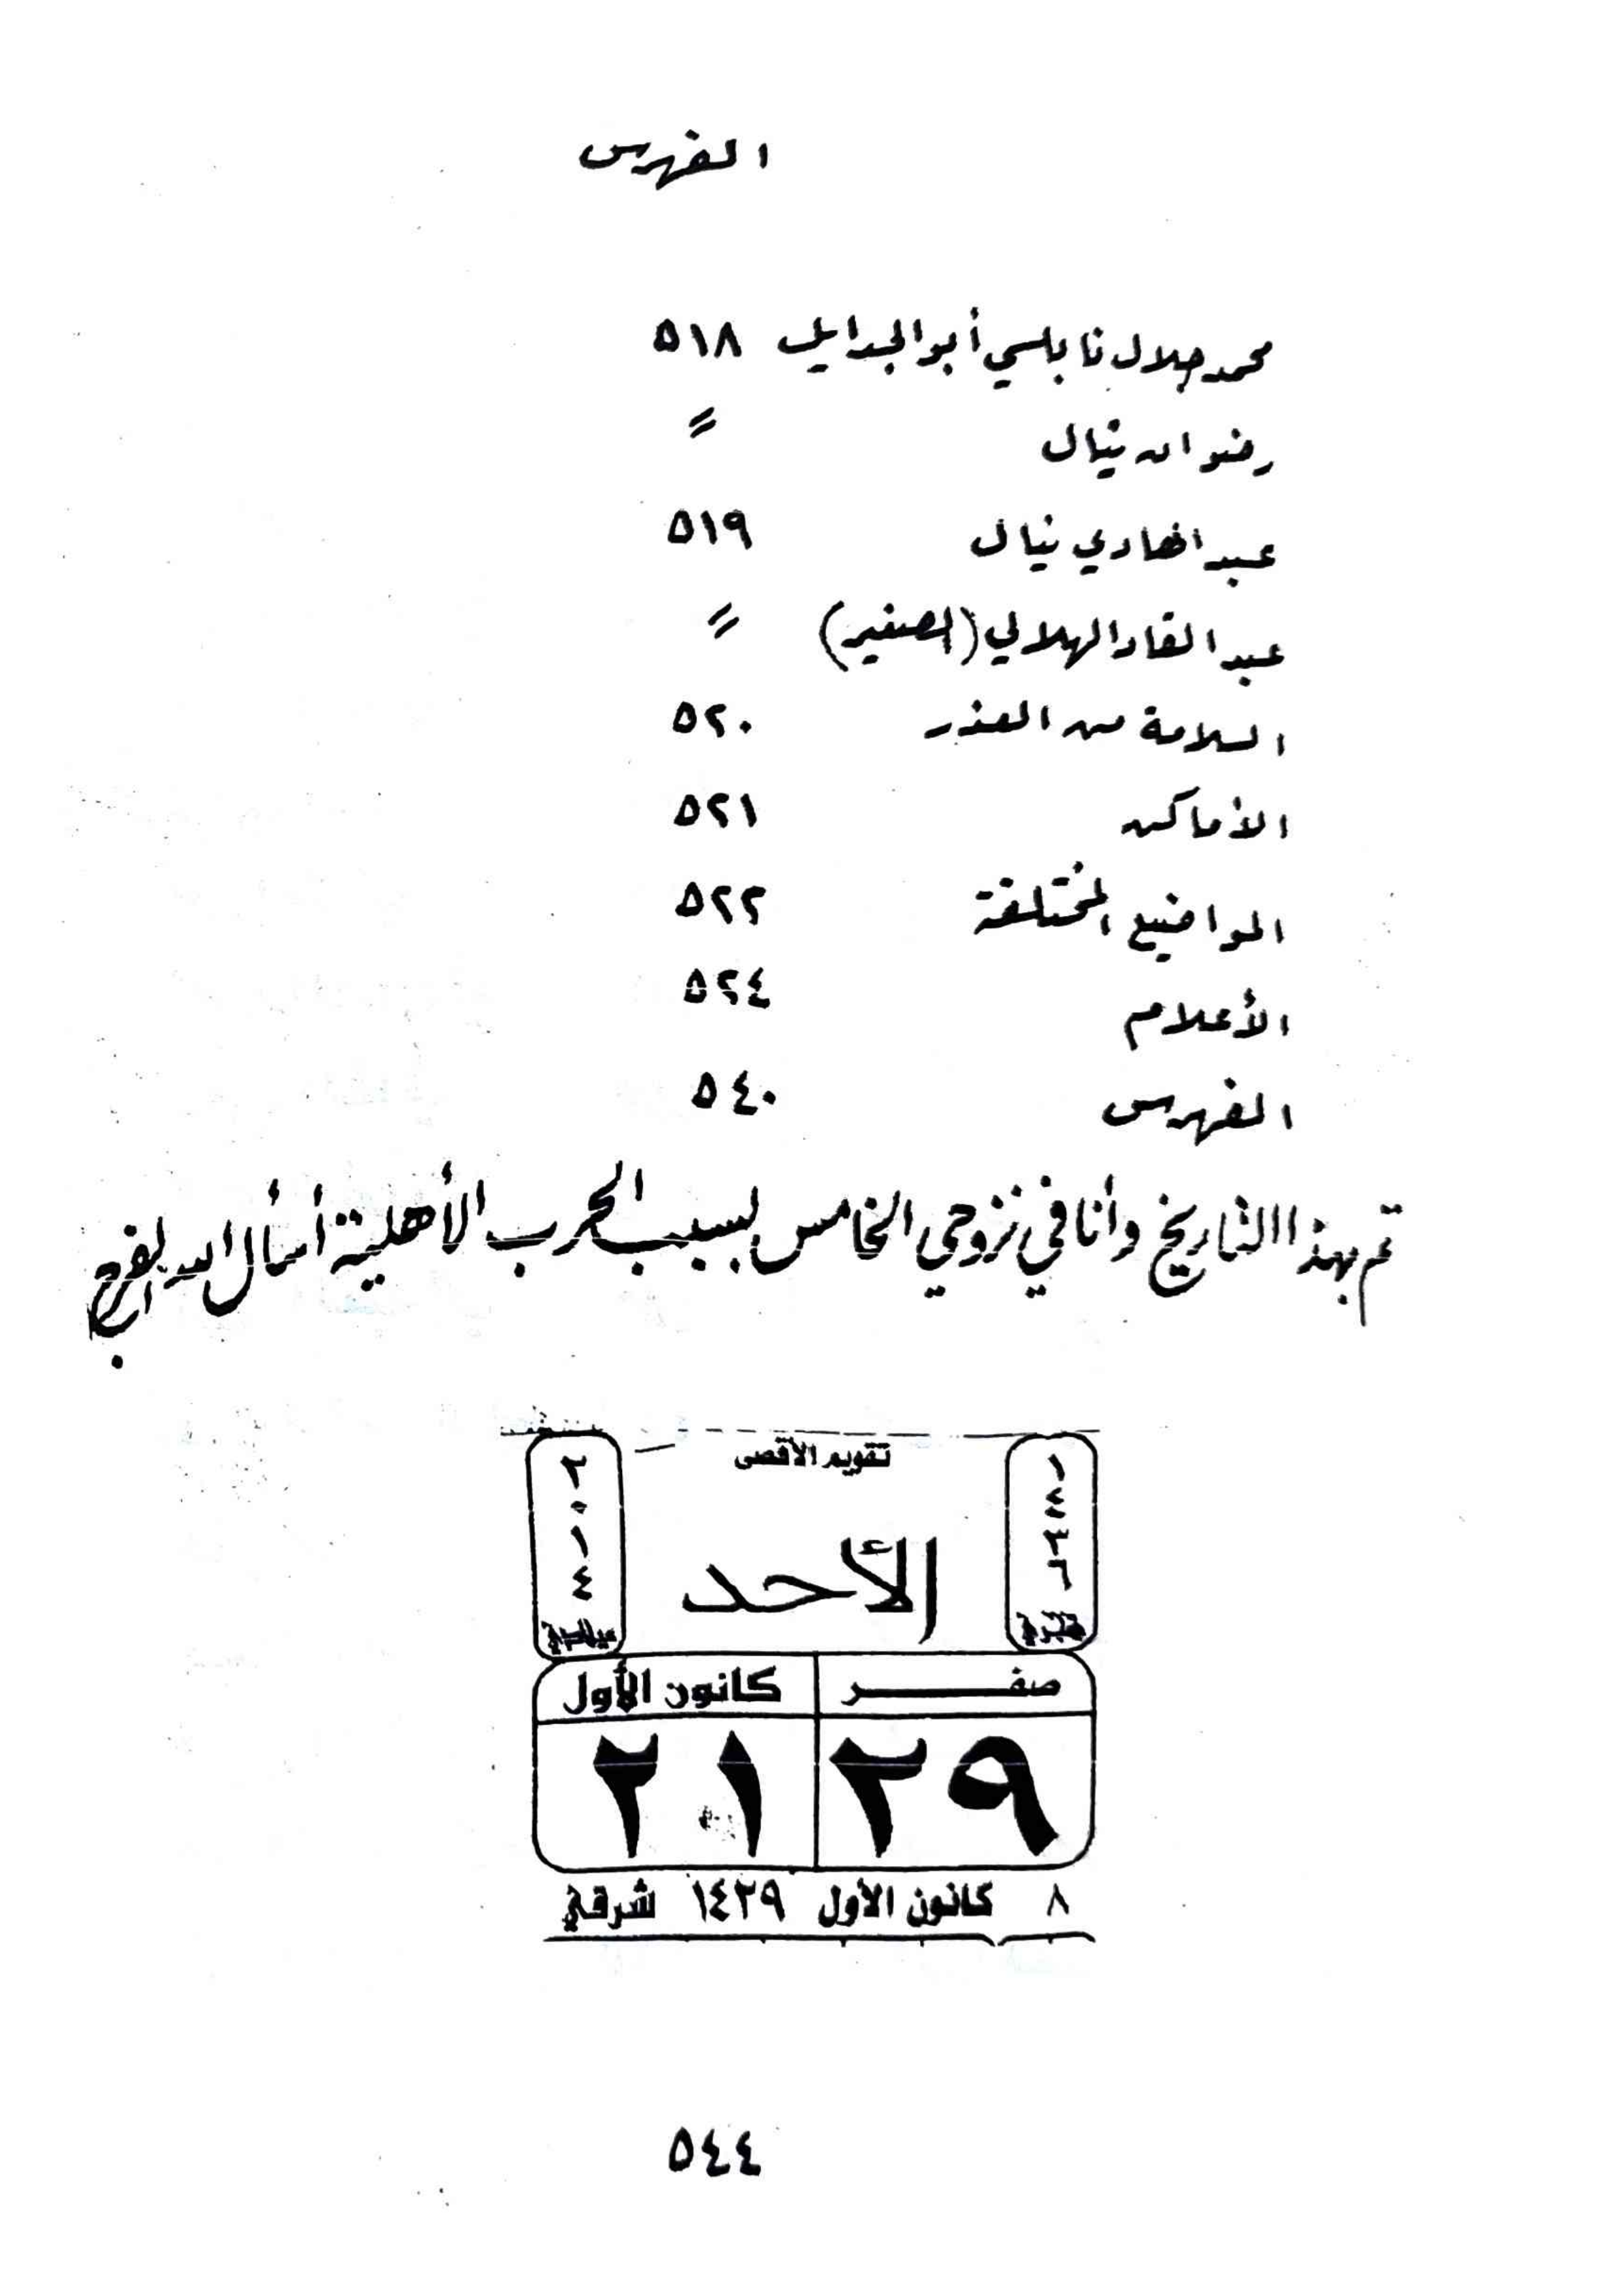 الفهرس
محمد جلال نابلسي أبو الجدايل ٥١٨
رضوان نيال 〃
عبد الهادي نيال ٥١٩
عبد القاد الهلالي (الصغير) 〃
السلامة من العذر ٥٢٠
الأماكن ٥٢١
المواضيع المختلفة ٥٢٢
الأعلام ٥٢٤
الفهرس ٥٤٠
تم بهذا التاريخ وأنا في نزوحي الخامس بسبب الحرب الأهلية أسأل الله الفرج
تقويم الأقصى
١٤٣٦ هجرية
الأحد
٢٠١٤ ميلادية
صفر كانون الأول
٢٩ ٢١
٨ كانون الأول ١٤٢٩ شرقي
٥٤٤